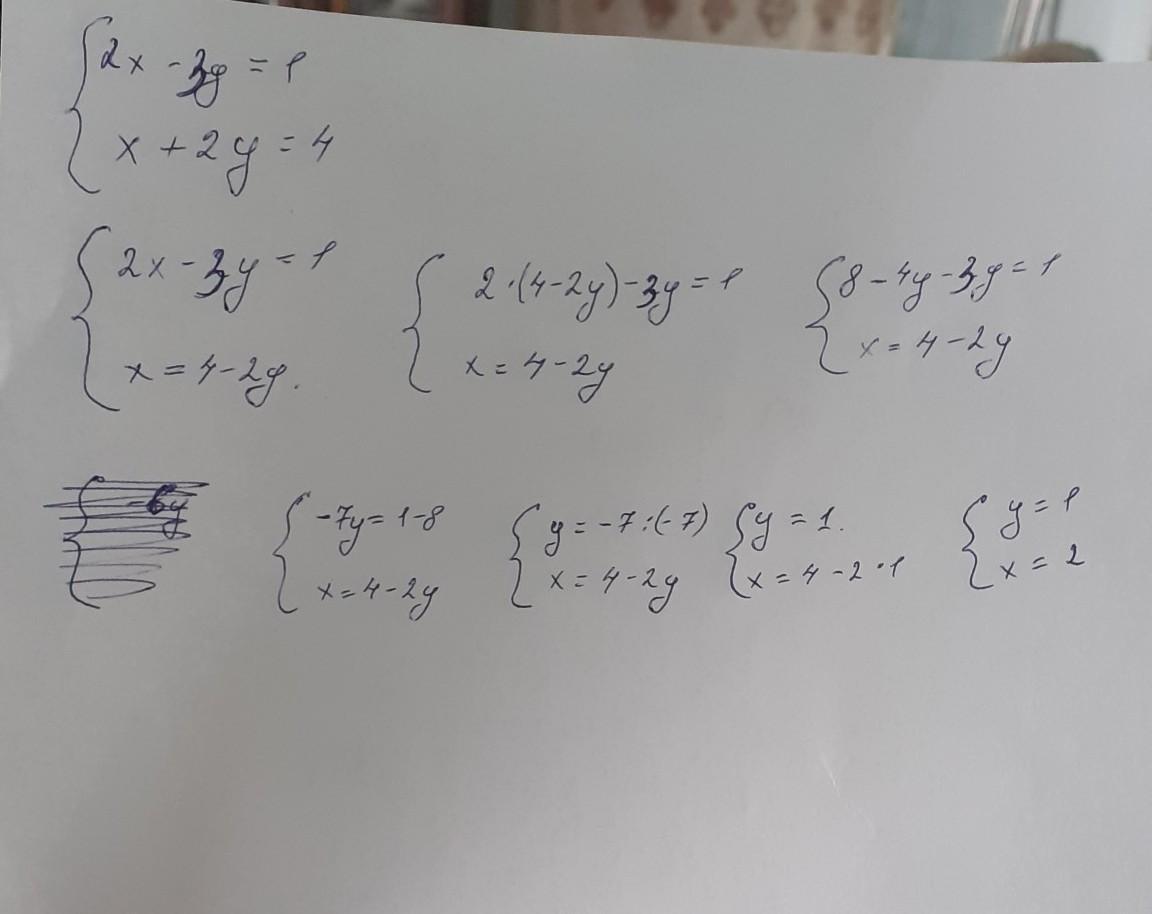 2x - 3y = 1
x + 2y = 4
2x - 3y = 1
x = 4 - 2y.
2·(4-2y) - 3y = 1
x = 4 - 2y
8 - 4y - 3y = 1
x = 4 - 2y
-6y
-7y = 1 - 8
x = 4 - 2y
y = -7:(-7)
x = 4 - 2y
y = 1.
x = 4 - 2·1
y = 1
x = 2